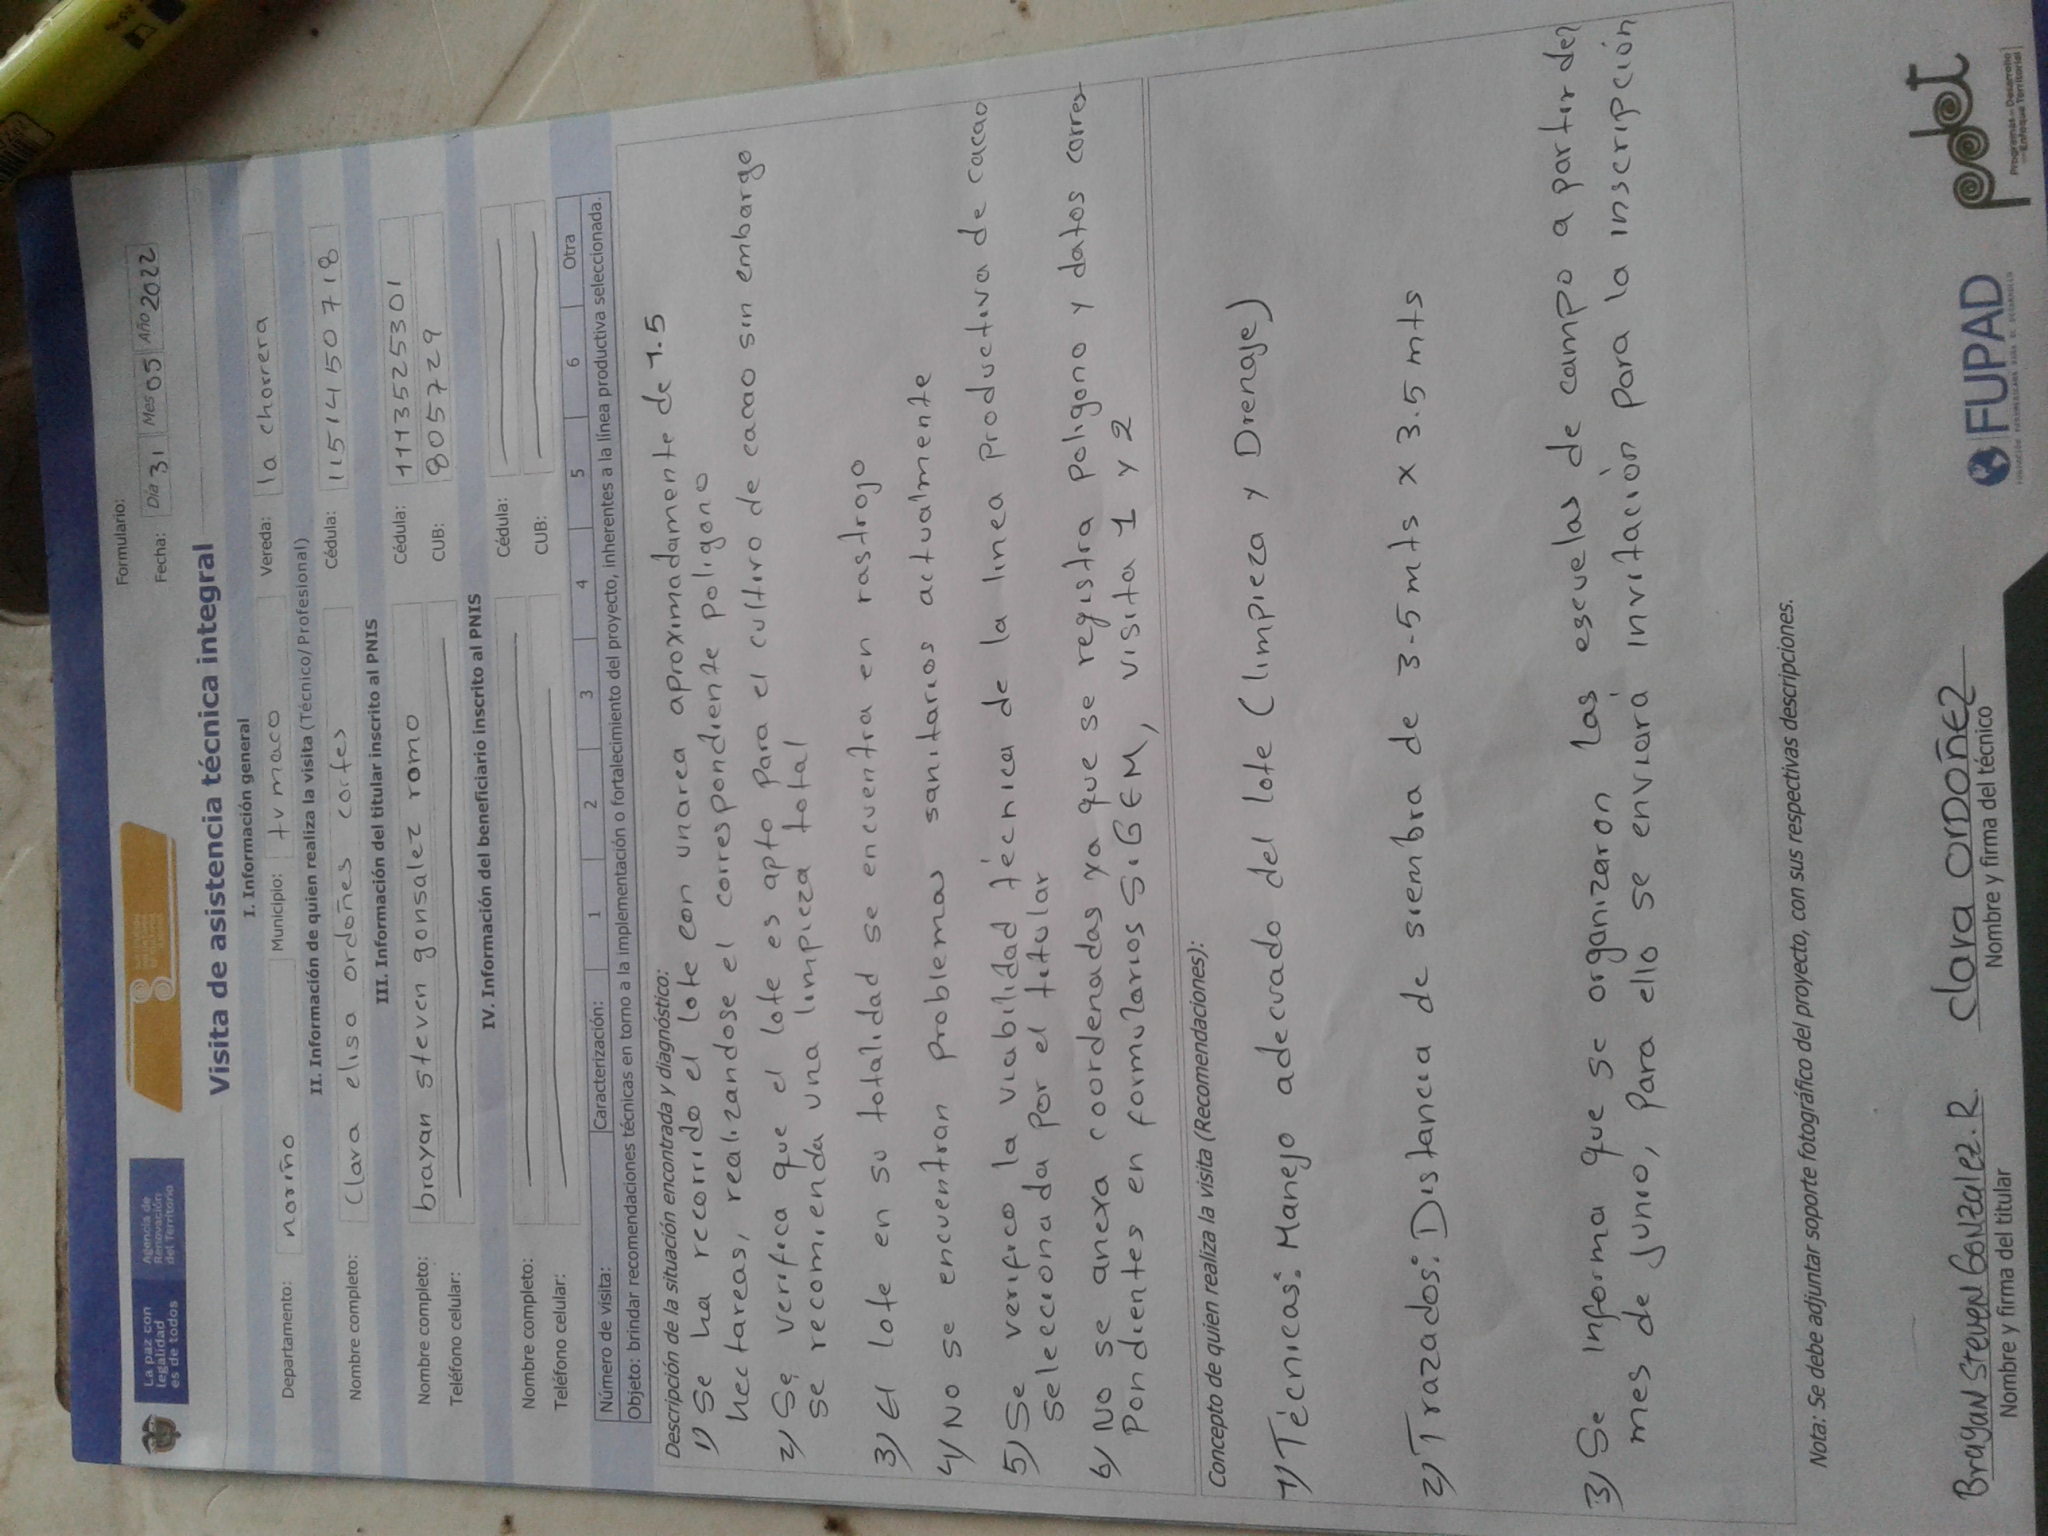 La paz con
legalidad
es de todos
Agencia de
Renovación
del Territorio
Formulario:
Fecha: Día 31 Mes 05 Año 2022
Visita de asistencia técnica integral
I. Información general
Departamento: nariño Municipio: tumaco Vereda: la chorrera
II. Información de quien realiza la visita (Técnico/Profesional)
Nombre completo: Clara elisa ordoñes cortes Cédula: 1151450718
III. Información del titular inscrito al PNIS
Nombre completo: brayan steven gonsalez romo Cédula: 1113525301
Teléfono celular: CUB: 805729
IV. Información del beneficiario inscrito al PNIS
Nombre completo: Cédula:
Teléfono celular: CUB:
Número de visita: Caracterización: 1 2 3 4 5 6 Otra
Objeto: brindar recomendaciones técnicas en torno a la implementación o fortalecimiento del proyecto, inherentes a la línea productiva seleccionada.
Descripción de la situación encontrada y diagnóstico:
1) Se ha recorrido el lote con unarea aproximadamente de 1.5
hectareas, realizandose el correspondiente poligono
2) Se verifica que el lote es apto para el cultivo de cacao sin embargo
se recomienda una limpieza total
3) El lote en su totalidad se encuentra en rastrojo
4) No se encuentran problemas sanitarios actualmente
5) Se verifico la viabilidad técnica de la linea productiva de cacao
seleccionada por el titular
6) No se anexa coordenadas ya que se registra poligono y datos corres
pondientes en formularios SIGEM, visita 1 y 2
Concepto de quien realiza la visita (Recomendaciones):
1) Técnicas: Manejo adecuado del lote (limpieza y Drenaje)
2) Trazados: Distancia de siembra de 3.5 mts x 3.5 mts
3) Se informa que se organizaron las escuelas de campo a partir del
mes de junio, para ello se enviará invitación para la inscripción
Nota: Se debe adjuntar soporte fotográfico del proyecto, con sus respectivas descripciones.
Brayan Steven Gonzalez.R Clara ORDOÑEZ
Nombre y firma del titular Nombre y firma del técnico
FUPAD
pdet
Programas de Desarrollo
con Enfoque Territorial